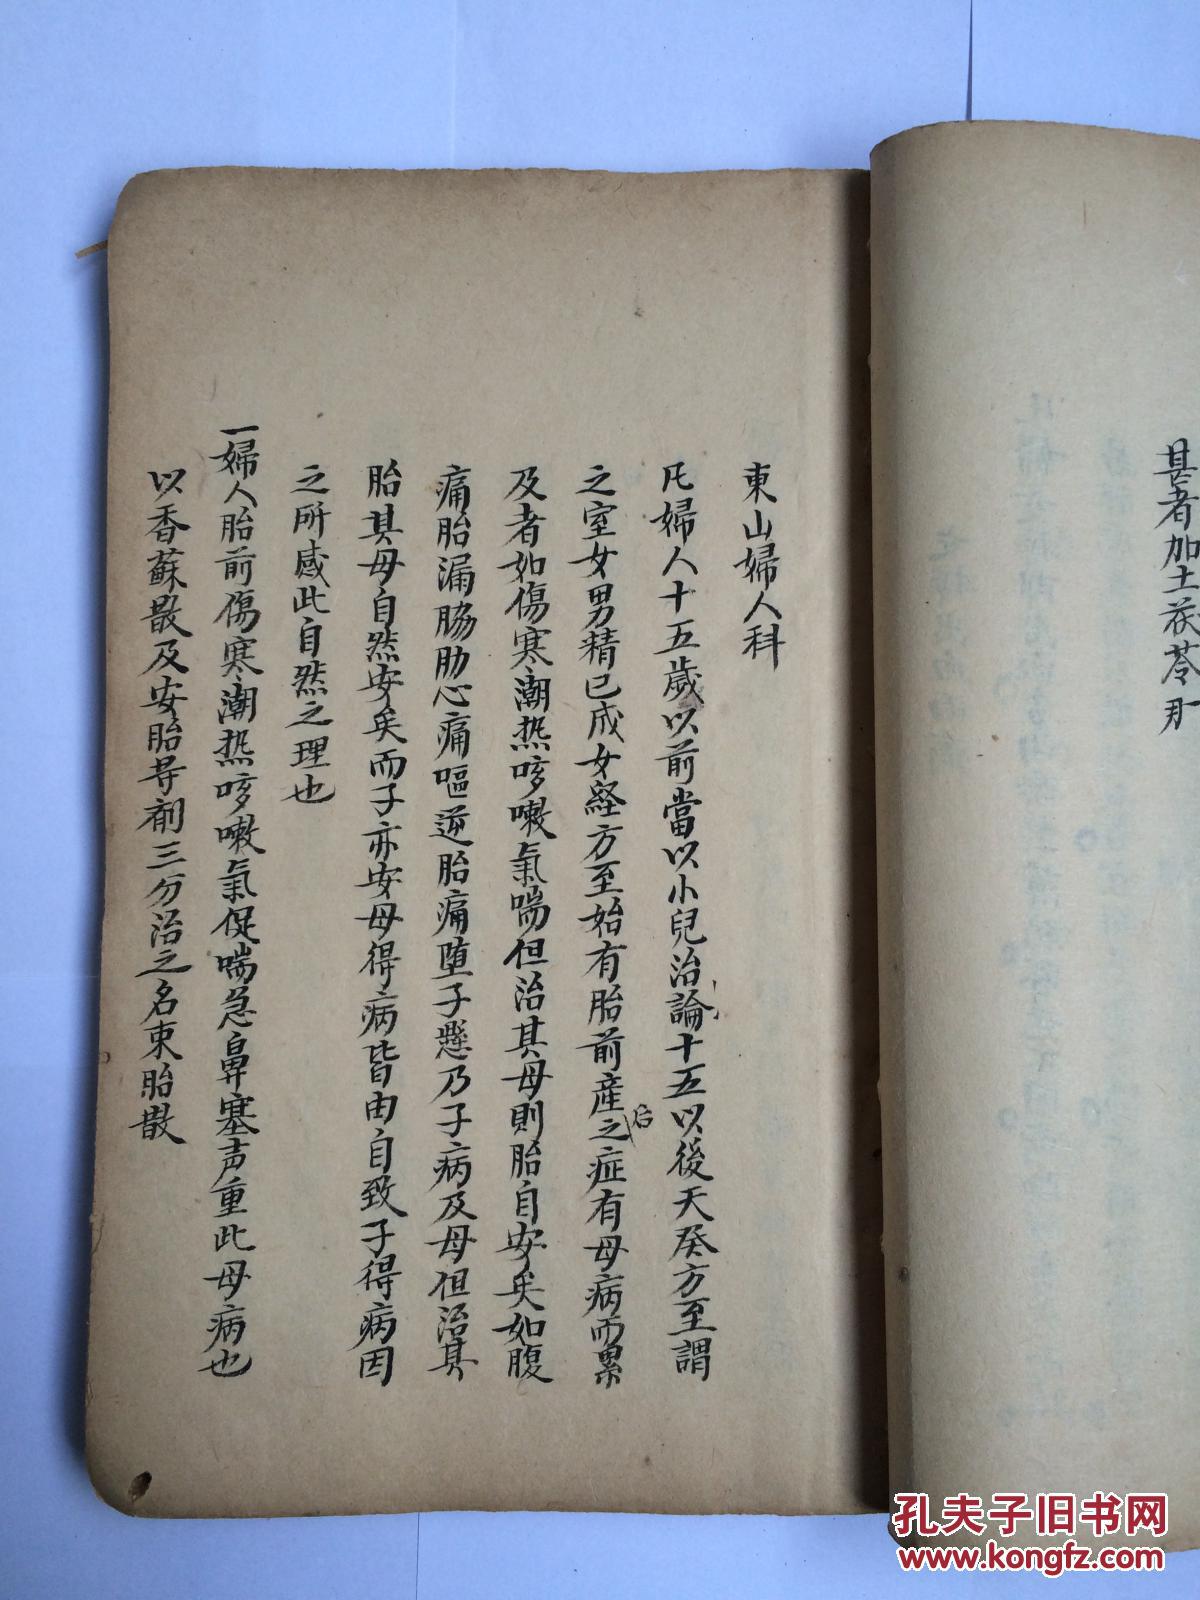 甚者加土茯苓
東山婦人科
凡婦人十五歲以前當以小兒治論十五以後天癸方至謂
之室女男精已成女経方至始有胎前産后之症有母病而累
及者如傷寒潮热咳嗽氣喘但治其母則胎自安矣如腹
痛胎漏脇肋心痛嘔逆胎痛堕子懸乃子病及母但治其
胎其母自然安矣而子亦安母得病皆由自致子得病因
之所感此自然之理也
一婦人胎前傷寒潮热咳嗽氣促喘急鼻塞声重此母病也
以香蘇散及安胎等剤三分治之名束胎散
孔夫子旧书网
www.kongfz.com